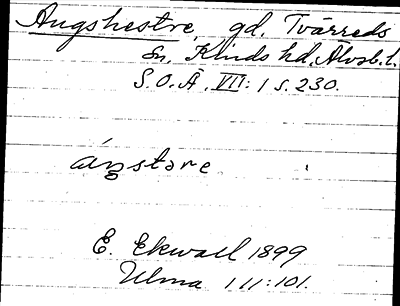 Ängshestre, gd. Tvärreds
sn, Kinds hd, Älvsb. l.
S.O.Ä. VII: 1 s. 230.
áŋstare
E. Ekwall 1899
Ulma 111:101.